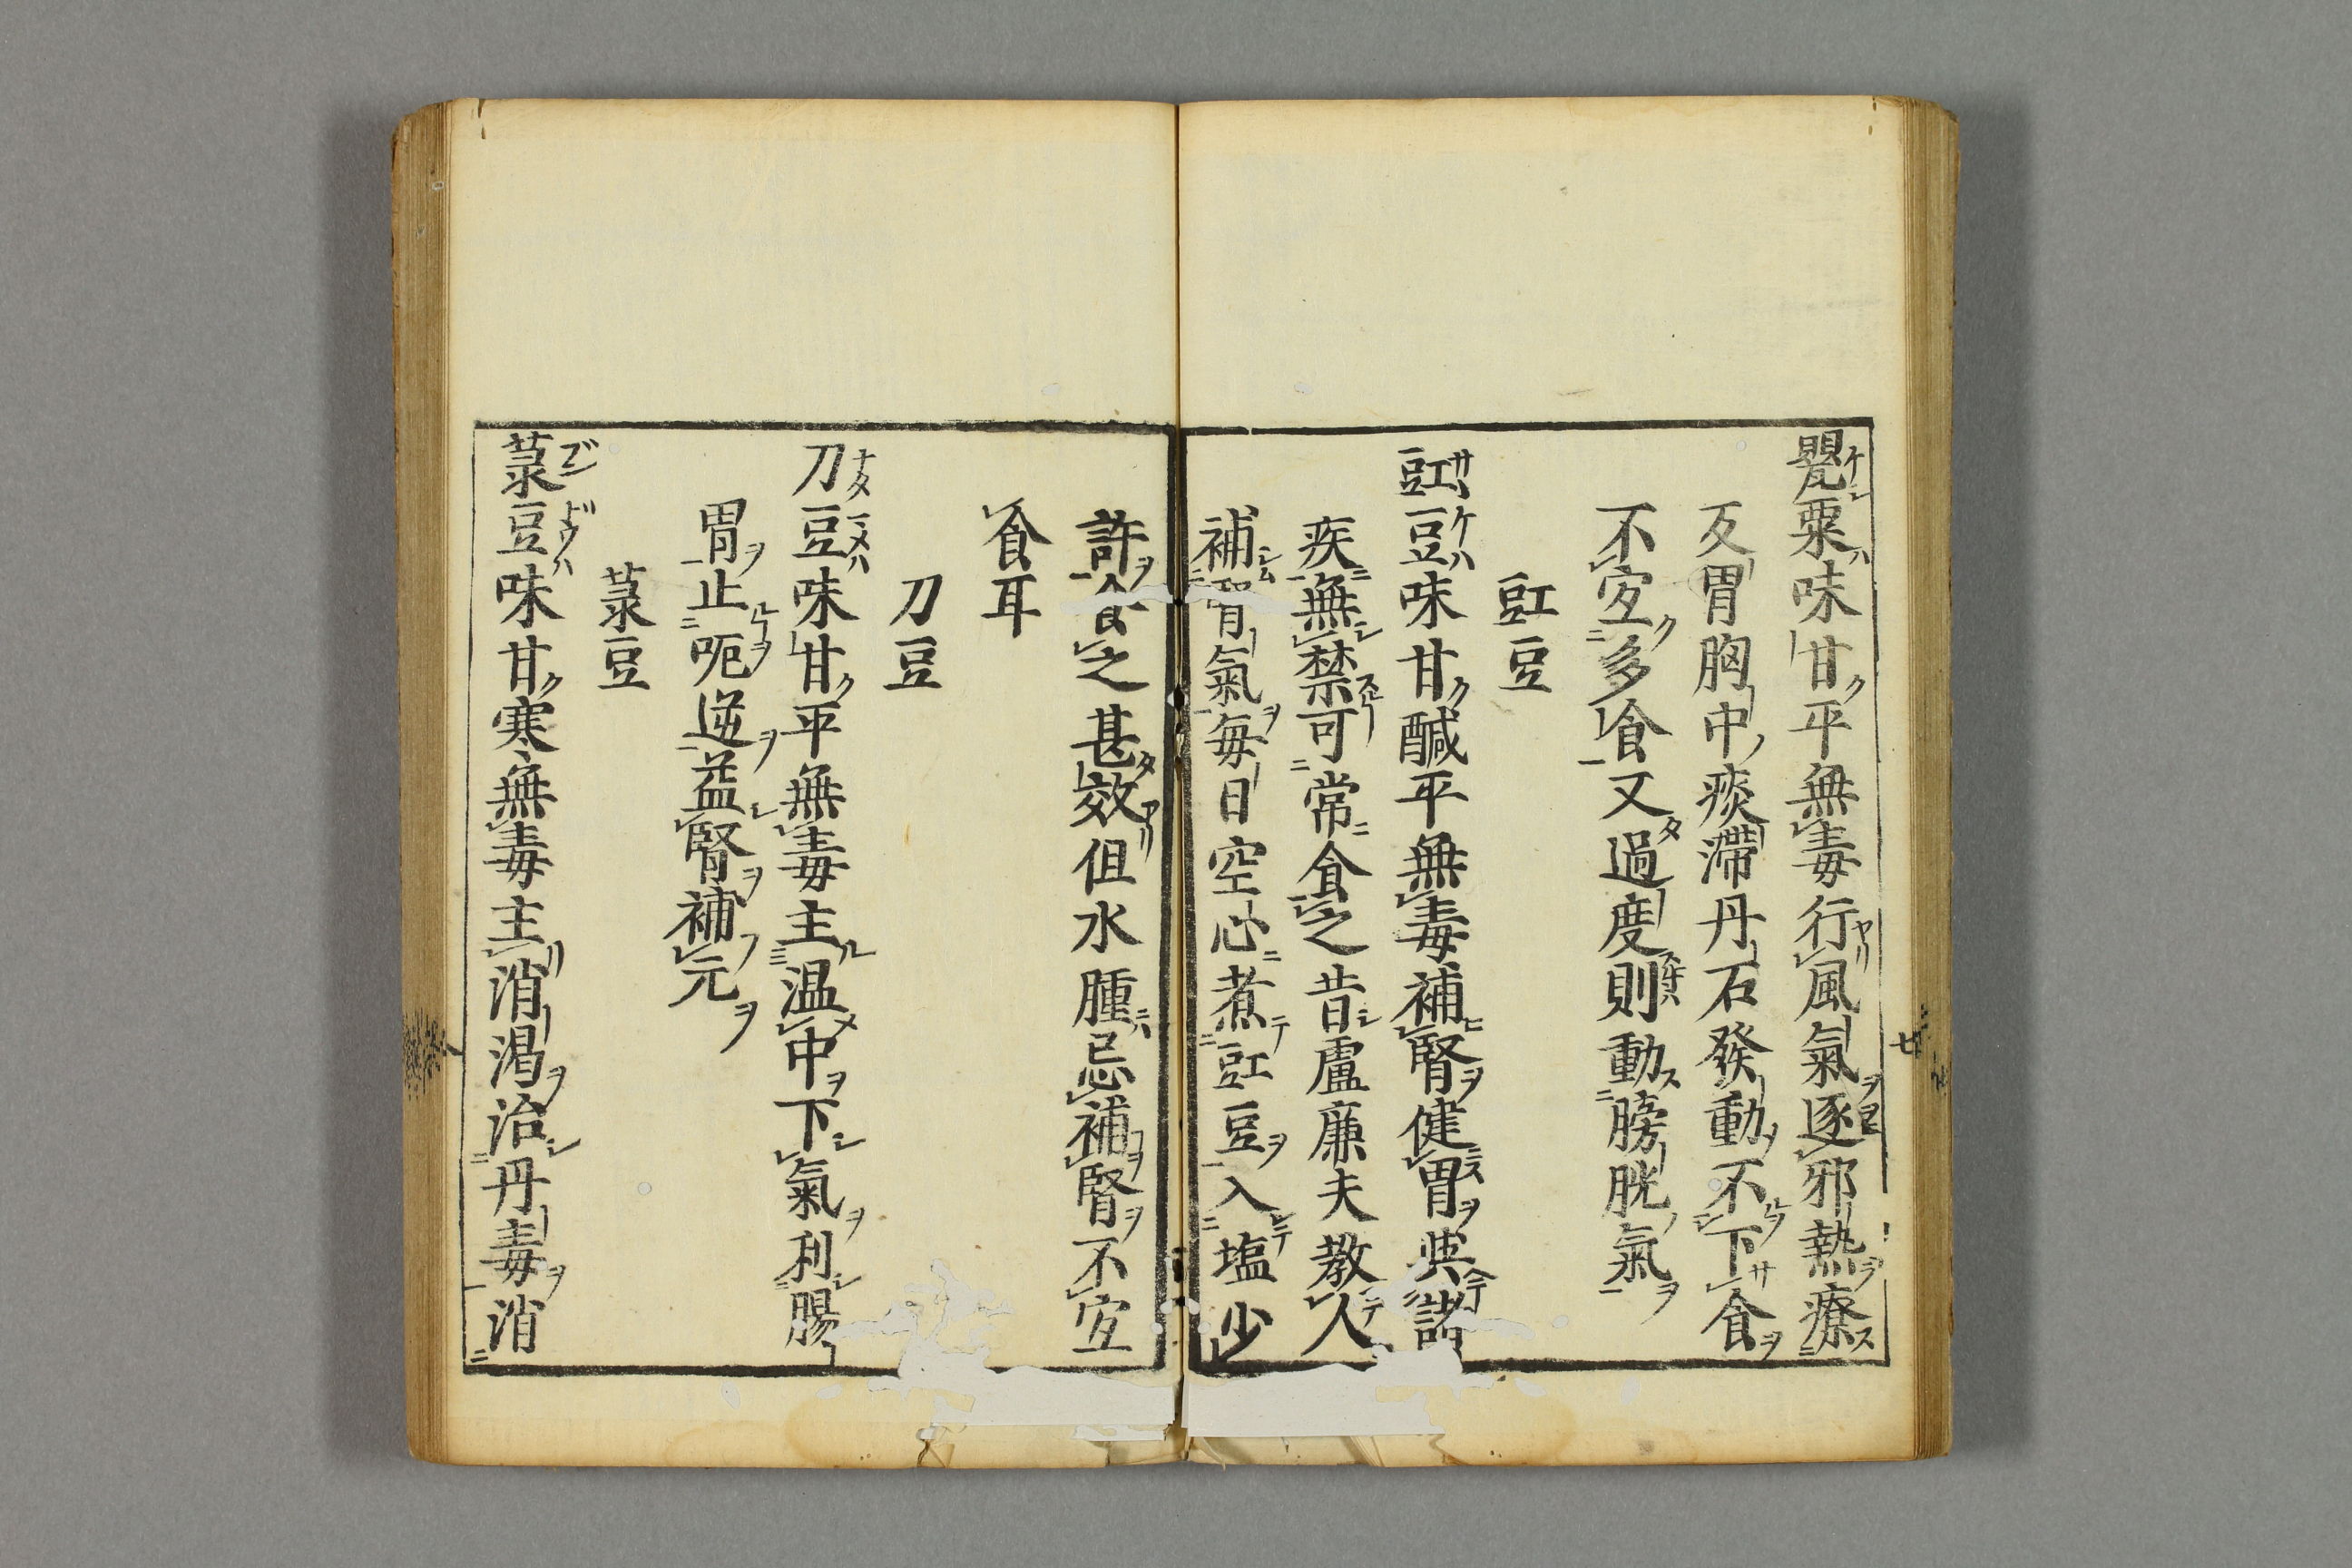 罌粟味甘平無毒行風氣逐邪熱療
反胃胸中痰滯丹石發動不下食
不宜多食又過度則動膀胱氣
豇豆
豇豆味甘醎平無毒補腎健胃與諸
疾無禁可常食之昔盧廉夫教人
補腎氣毎日空心煮豇豆入塩少
許食之甚效但水腫忌補腎不宜
食耳
刀豆
刀豆味甘平無毒主溫中下氣利腸
胃止呃逆益腎補元
菉豆
菉豆味甘寒無毒主消渇治丹毒消